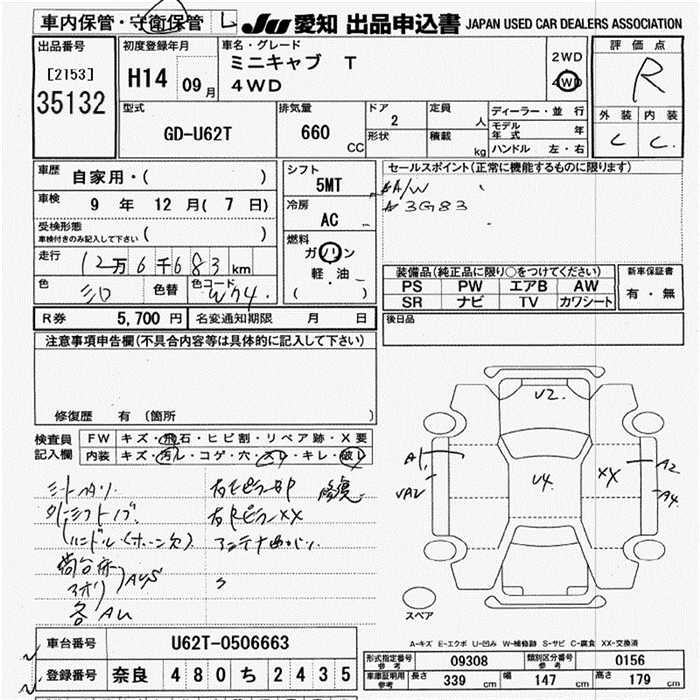 車内保管・守衛保管 L JU 愛知 出品申込書 JAPAN USED CAR DEALERS ASSOCIATION
出品番号
[2153]
35132
初度登録年月
H14 09月
車名・グレード
ミニキャブ T
4WD
2WD
4WD
評価点
R
外装 内装
C C
型式
GD-U62T
排気量
660 CC
ドア
2
形状
定員
人
積載
kg
ディーラー・並行
モデル年式 年
ハンドル 左・右
車歴
自家用・( )
車検
9 年 12 月( 7 日)
受検形態
車検付きのみ記入して下さい ( )
走行
12万6千683km
色
シロ
色替
色コード
W74
シフト
5MT
冷房
AC
燃料
ガソリン
軽・油
( )
セールスポイント(正常に機能するものに限ります)
A/W
3G83
装備品(純正品に限り○をつけてください)
PS PW エアB AW
SR ナビ TV カワシート
新車保証書
有・無
R券 5,700 円 名変通知期限 月 日
後日品
注意事項申告欄(不具合内容等は具体的に記入して下さい)
修復歴 有 (箇所 )
検査員
記入欄
FW キズ・飛石・ヒビ割・リペア跡・X要
内装 キズ・汚れ・コゲ・穴・スレ・キレ・破レ
右Cピラー 修復
シートヤブリ
外シフトノブ
右Rピラー XX
ハンドル(ホーン欠)
アンテナ
荷台床
アオリ
AUS
各AU
U2
U4
A1
UA2
XX
A2
A4
スペア
A-キズ E-エクボ U-凹み W-補修跡 S-サビ C-腐食 XX-交換済
車台番号 U62T-0506663
登録番号 奈良 480 ち 2435
形式指定番号 参考 09308 類別区分番号 参考 0156
車庫証明用 参考 長さ 339 cm 幅 147 cm 高さ 179 cm